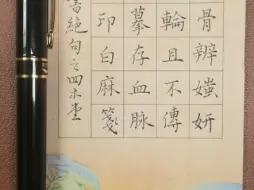 骨辨媸妍
輪且不傳
摹存血脈
印白麻箋
書絕句之四